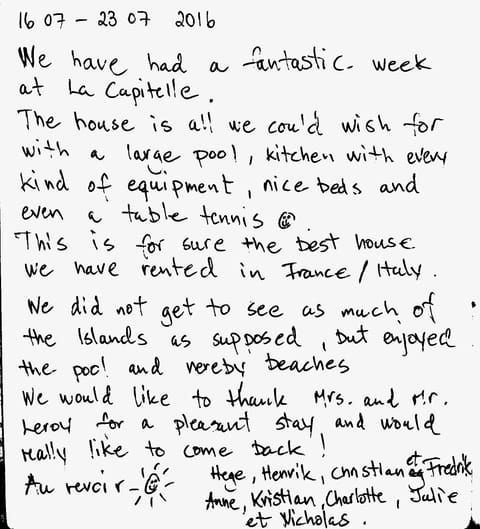 16 07 - 23 07 2016
We have had a fantastic week
at La Capitelle.
The house is all we could wish for
with a large pool, kitchen with every
kind of equipment, nice beds and
even a table tennis ☺.
This is for sure the best house
we have rented in France / Italy.
We did not get to see as much of
the Islands as supposed, but enjoyed
the pool and nereby beaches
We would like to thank Mrs. and Mr.
Leroy for a pleasant stay and would
really like to come back!
Au revoir -
Hege, Henrik, Christian et Fredrik
Anne, Kristian, Charlotte, Julie
et Nicholas.